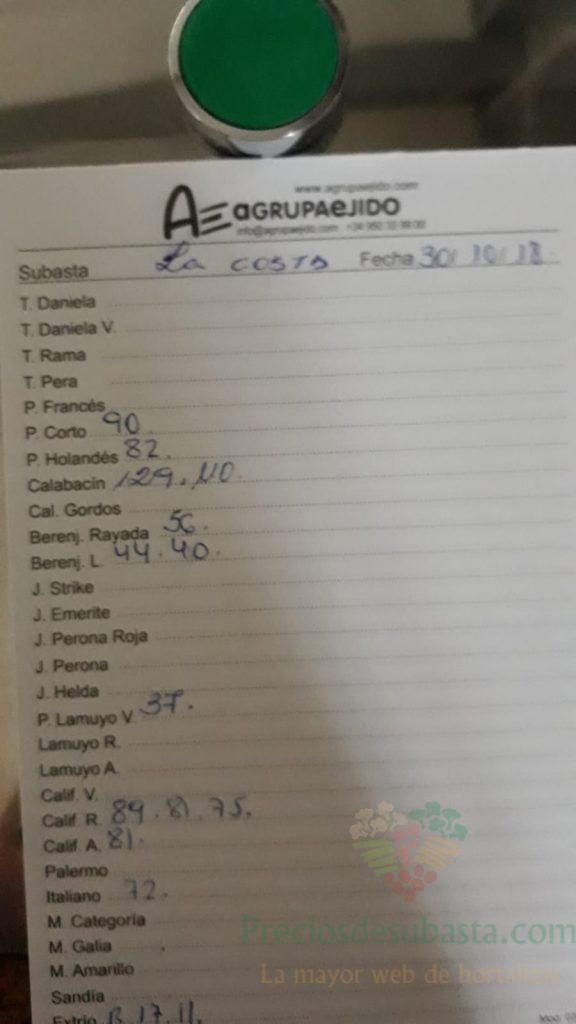 www.agrupaejido.com
AGRUPAEJIDO
info@agrupaejido.com
Subasta La COSTA Fecha 30/10/18.
T. Daniela
T. Daniela V.
T. Rama
T. Pera
P. Francés
P. Corto 90.
P. Holandés 82.
Calabacín 129. 110.
Cal. Gordos
Berenj. Rayada 56.
Berenj. L. 44.40.
J. Strike
J. Emerite
J. Perona Roja
J. Perona
J. Helda
P. Lamuyo V. 37.
Lamuyo R.
Lamuyo A.
Calif. V.
Calif. R. 89.81.75.
Calif. A. 81.
Palermo
Italiano 72.
M. Categoria
M. Galia
M. Amarillo
Sandía
Extrio 17.11.
Preciosdesubasta.com
La mayor web de